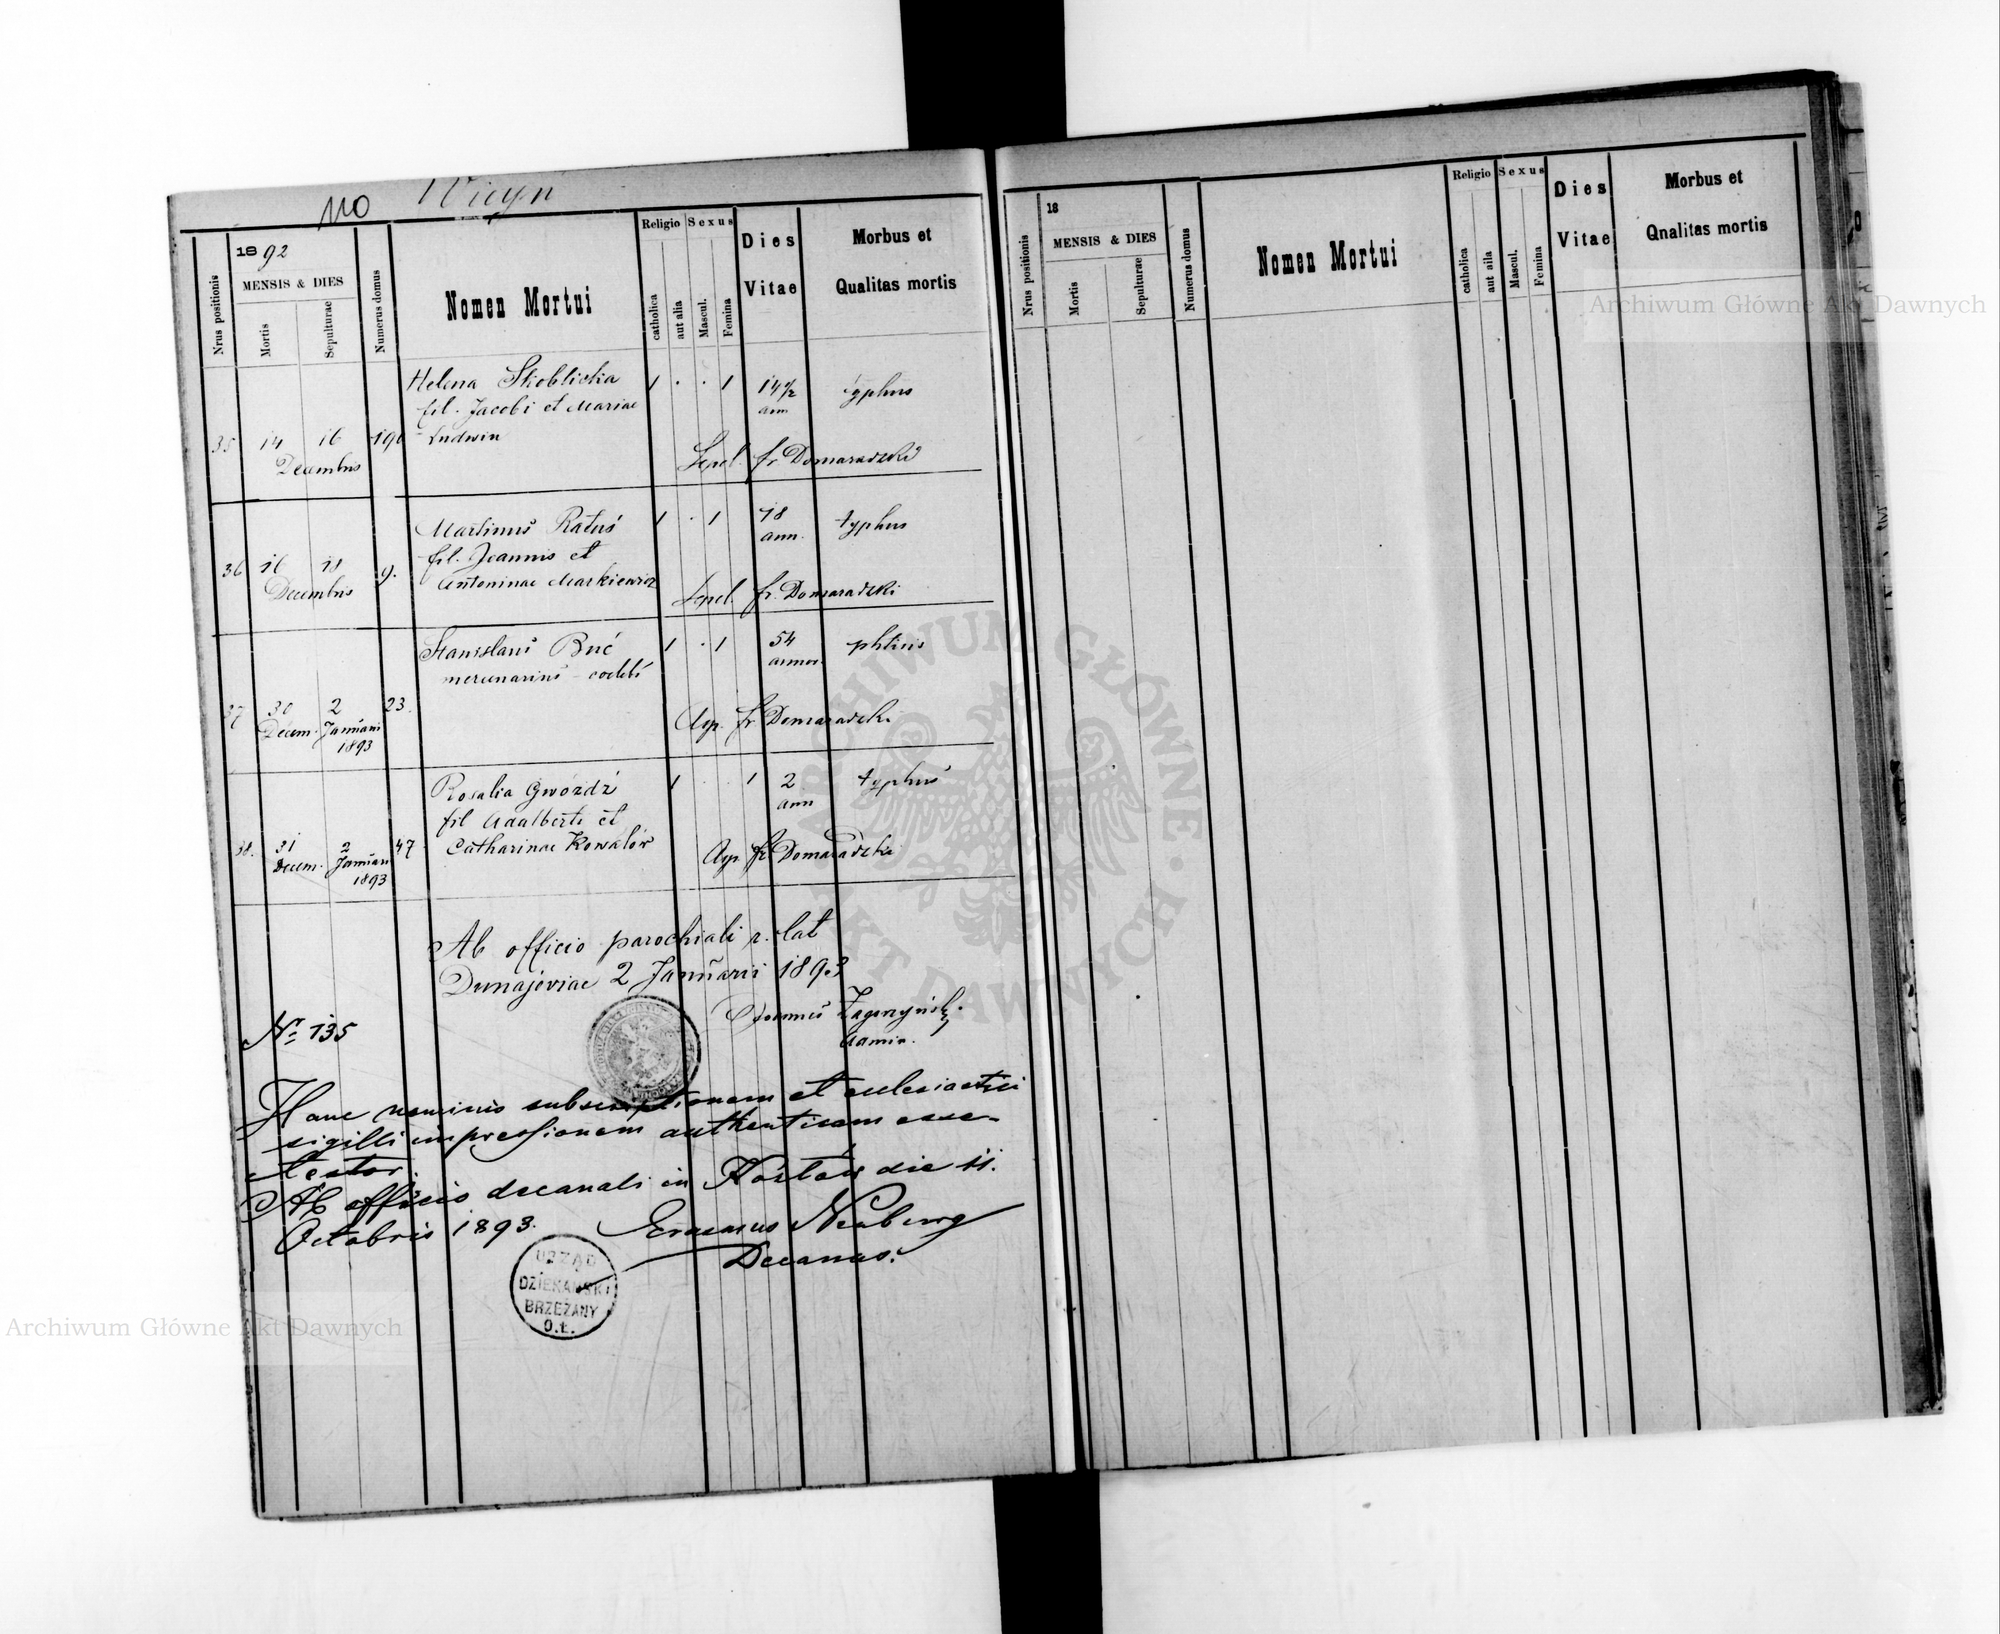 110 Wicyn
Nrus positionis
1892
MENSIS & DIES
Mortis
Sepulturae
Numerus domus
Nomen Mortui
Religio
catholica
aut alia
Sexus
Mascul.
Femina
Dies
Vitae
Morbus et
Qualitas mortis
Helena Skoblicka 1 . . 1 14 1/2 typhus
fil. Jacobi et Mariae ann
35 14 16 190 Ludwin
Decembris Sepel. fr Domaradzki
Martinus Ratuś 1 . 1 18 typhus
fil. Joannis et ann.
36 16 18 9. Antoninae Markiewicz
Decembris Sepel. fr. Domaradzki
Stanislaus Buć 1 . 1 54 phtisis
mercenarius - coelebs annor.
37 30 2 23.
Decem. Januarii Asp. fr Domaradzki
1893
Rosalia Gwóźdź 1 . . 1 2 typhus
fil Adalberti et ann
38. 31 2 47 Catharinae Kowalów
Decem. Januarii Asp. fr Domaradzki
1893
Ab officio parochiali r. lat
Dunajoviae 2 Januarii 1893
Joannes
Admin.
No 135
Hanc nominis subscriptionem et ecclesiastici
sigilli impressionem authenticam esse
testor.
Ab officio decanali in die 11.
Octobris 1893. Erasmus Neuburg
Decanus.
URZĄD
DZIEKAŃSKI
BRZEŻANY
O.Ł.
Nrus positionis
18
MENSIS & DIES
Mortis
Sepulturae
Numerus domus
Nomen Mortui
Religio
catholica
aut aila
Sexus
Mascul.
Femina
Dies
Vitae
Morbus et
Qnalitas mortis
Archiwum Główne Akt Dawnych
ARCHIWUM GŁÓWNE AKT DAWNYCH
Archiwum Główne Akt Dawnych